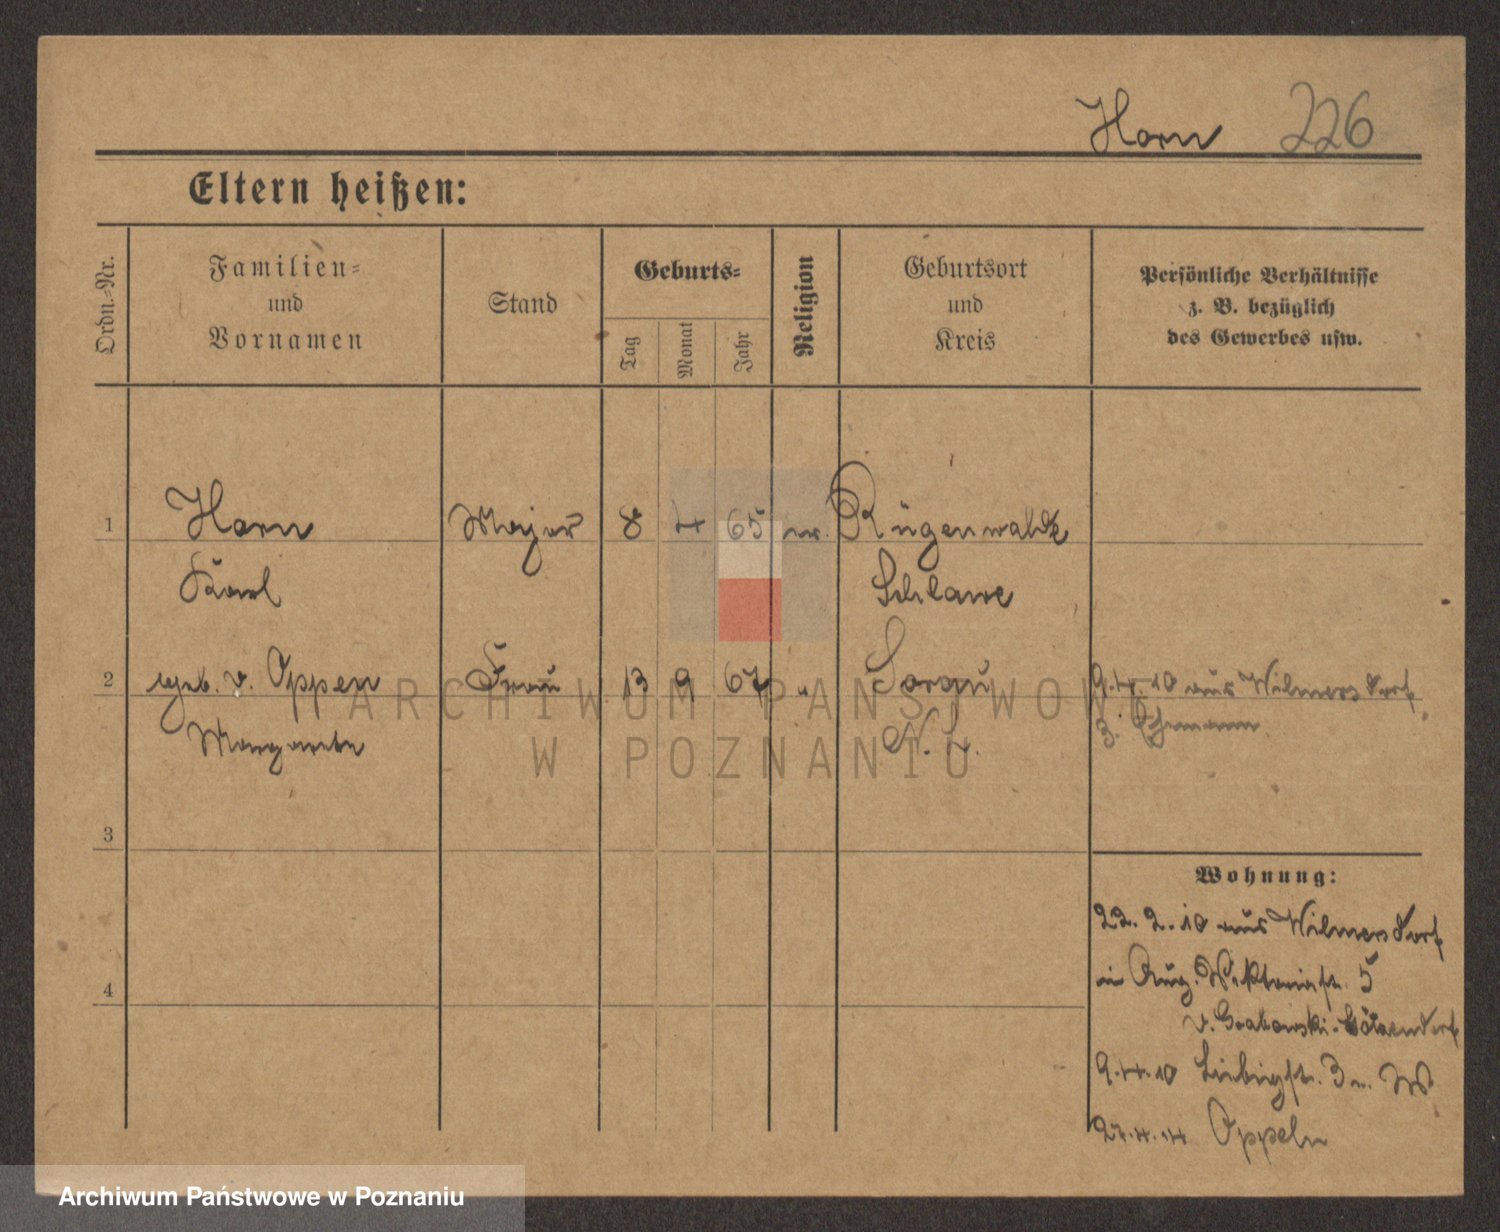 Horn 226
Eltern heißen:
Ordn.-Nr.
Familien-
und
Vornamen
Stand
Geburts-
Tag
Monat
Jahr
Religion
Geburtsort
und
Kreis
Persönliche Verhältnisse
z. B. bezüglich
des Gewerbes usw.
1 Horn Major 8 4 65 ev. Rügenwalde
Karl Schlawe
2 geb. v. Oppen Frau 13 9 67 " Sorau 9.4.10 aus Wilmersdorf
Margarete N. L. z. Ehemann
3
4
Wohnung:
22. 2. 10 aus Wilmersdorf
in Aug. Viktoriastr. 5
v. Grabowski-Götzendorf
9.4.10 Liebigstr. 3
27.4.14 Oppeln
ARCHIWUM PAŃSTWOWE
W POZNANIU
Archiwum Państwowe w Poznaniu